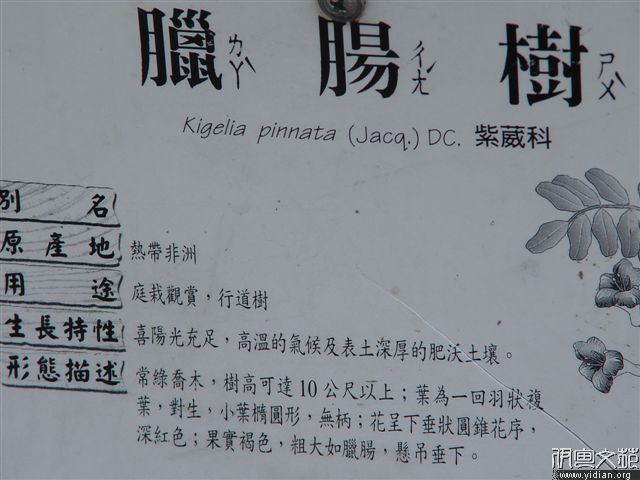 臘ㄌㄚˋ 腸ㄔㄤˊ 樹ㄕㄨˋ
Kigelia pinnata (Jacq.) DC. 紫葳科
別名
原產地 熱帶非洲
用途 庭栽觀賞，行道樹
生長特性 喜陽光充足，高溫的氣候及表土深厚的肥沃土壤。
形態描述 常綠喬木，樹高可達10公尺以上；葉為一回羽狀複
葉，對生，小葉橢圓形，無柄；花呈下垂狀圓錐花序，
深紅色；果實褐色，粗大如臘腸，懸吊垂下。
www.yidian.org